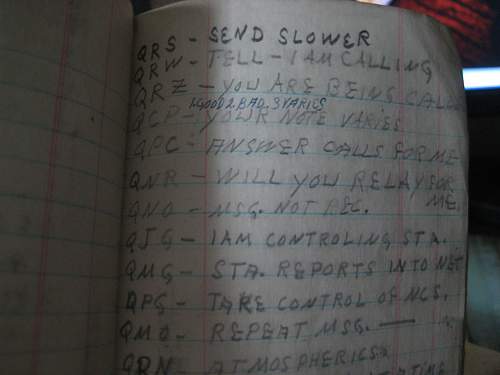 QRS - SEND SLOWER
QRW - TELL - I AM CALLING
QRZ - YOU ARE BEING CALLED
1 GOOD 2 BAD 3 VARIES
QCP - YOUR NOTE VARIES
QPC - ANSWER CALLS FOR ME
QNR - WILL YOU RELAY FOR
ME.
QNO - MSG. NOT REC.
QJG - I AM CONTROLING STA.
QMG - STA. REPORTS INTO NET
QPG - TAKE CONTROL OF NCS.
QMO - REPEAT MSG. —
QRN - ATMOSPHERICS